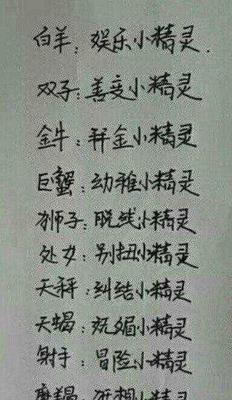 白羊：娱乐小精灵.
双子：善变小精灵
金牛：拜金小精灵
巨蟹：幼稚小精灵
狮子：脱线小精灵
处女：别扭小精灵
天秤：纠结小精灵
天蝎：妩媚小精灵
射手：冒险小精灵
摩羯：想小精灵